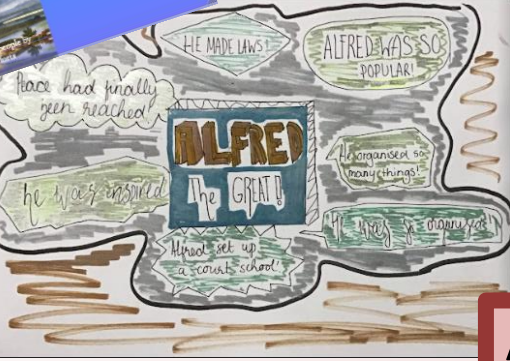 HE MADE LAWS!
ALFRED WAS SO
POPULAR!
Peace had finally
been reached!
ALFRED
The GREAT!
He organised so
many things!
he was inspired
He was so organised!
Alfred set up
a court school!